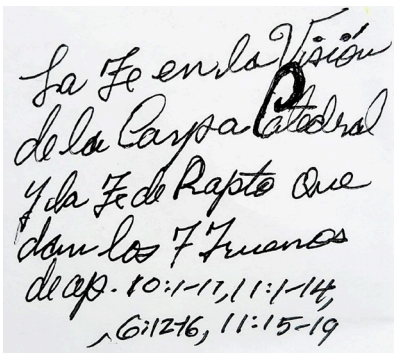 La Fe en la Visión
de la Carpa Catedral
y la Fe de Rapto Que
dan los 7 Truenos
de ap. 10:1-11, 11:1-14,
6:12-16, 11:15-19